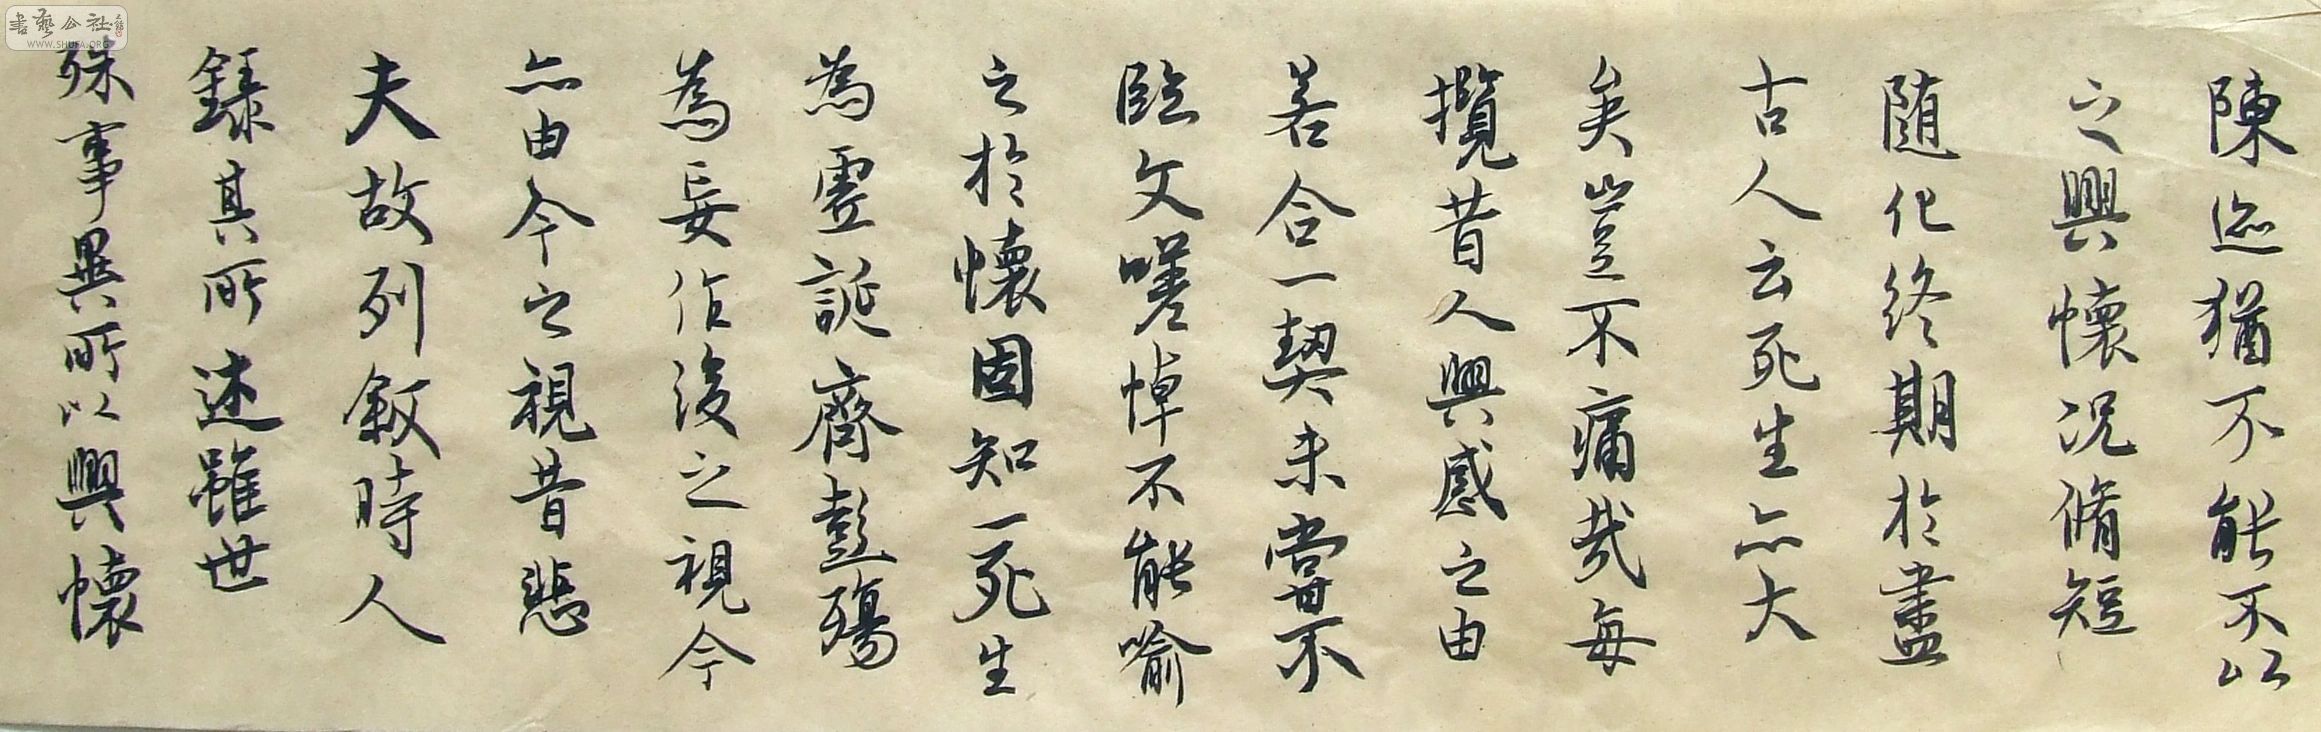 陳迹猶不能不以
之興懷況脩短
随化終期於盡
古人云死生亦大
矣豈不痛哉每
攬昔人興感之由
若合一契未嘗不
臨文嗟悼不能喻
之於懷固知一死生
為虛誕齊彭殤
為妄作後之視今
亦由今之視昔悲
夫故列叙時人
錄其所述雖世
殊事異所以興懷
書藝公社
WWW.SHUFA.ORG